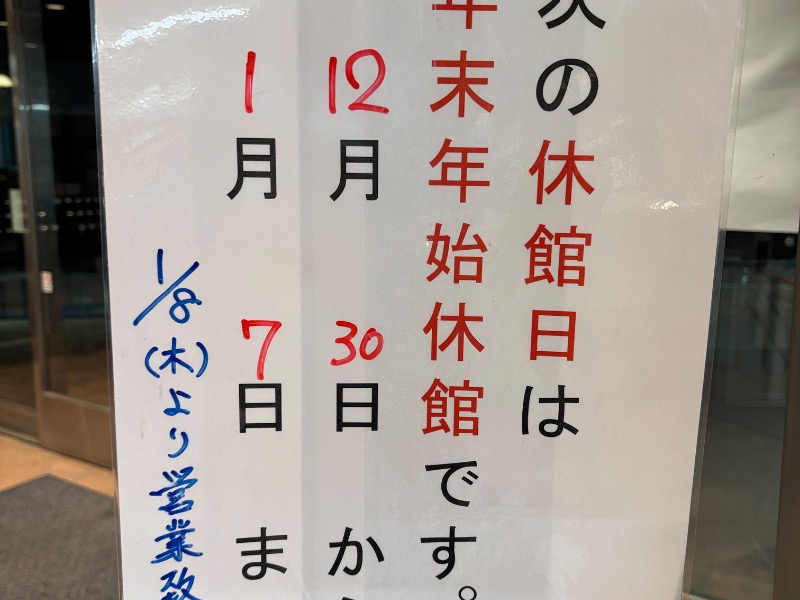 次の休館日は
年末年始休館です。
12月30日か
1月7日ま
1/8(木)より営業致